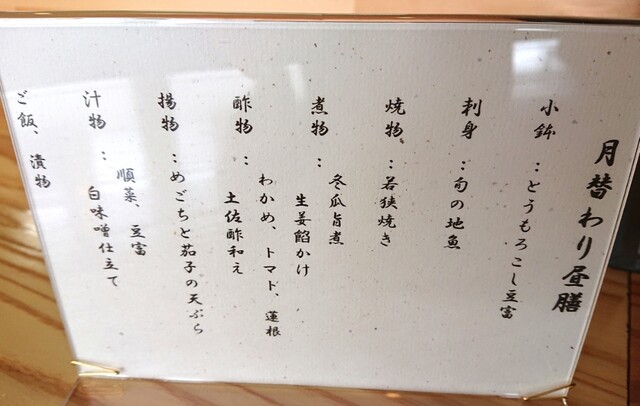 月替わり昼膳
小鉢：とうもろこし豆富
刺身：旬の地魚
焼物：若狭焼き
煮物：冬瓜旨煮
生姜餡かけ
酢物：わかめ、トマト、蓮根
土佐酢和え
揚物：めごちと茄子の天ぷら
順菜、豆富
汁物：白味噌仕立て
ご飯、漬物